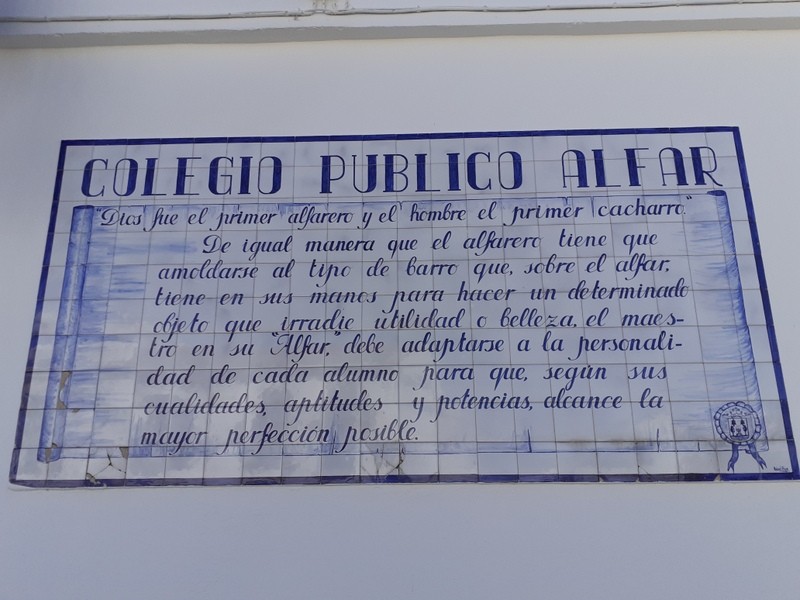 COLEGIO PUBLICO ALFAR
"Dios fue el primer alfarero y el hombre el primer cacharro."
De igual manera que el alfarero tiene que
amoldarse al tipo de barro que, sobre el alfar,
tiene en sus manos para hacer un determinado
objeto que irradie utilidad o belleza, el maes-
tro en su "Alfar," debe adaptarse a la personali-
dad de cada alumno para que, según sus
cualidades, aptitudes y potencias, alcance la
mayor perfección posible.